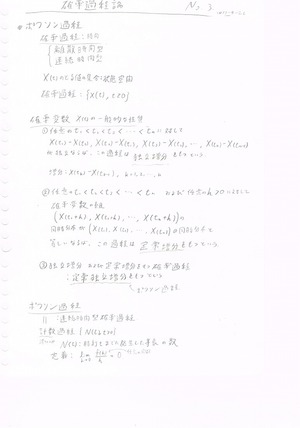 確率過程論 No 3
● ポアソン過程
確率過程:
離散時間型
連続時間型
X(t)のとる値の集合:状態空間
確率過程:{X(t), t≥0}
確率変数 X(t)の一般的な性質
①任意の t₀<t₁<t₂<…<tₙに対して
X(t₁)-X(t₀), X(t₂)-X(t₁), …, X(tₙ)-X(tₙ₋₁)
が独立ならば、この過程は独立増分をもつという
②任意の t₀<t₁<t₂<…<tₙ および任意のh≥0に対して
確率変数の組
(X(t₀+h), X(t₁+h), …, X(tₙ+h))の
同時分布が(X(t₀), X(t₁), …, X(tₙ))の同時分布と
等しいならば、この過程は定常増分をもつという
③独立増分および定常増分をもつ確率過程
:定常独立増分をもつという
ポアソン過程
ポアソン過程
:連続時間型確率過程
計数過程{N(t), t≥0}
N(t):時刻tまでに発生した事象の数
定義: